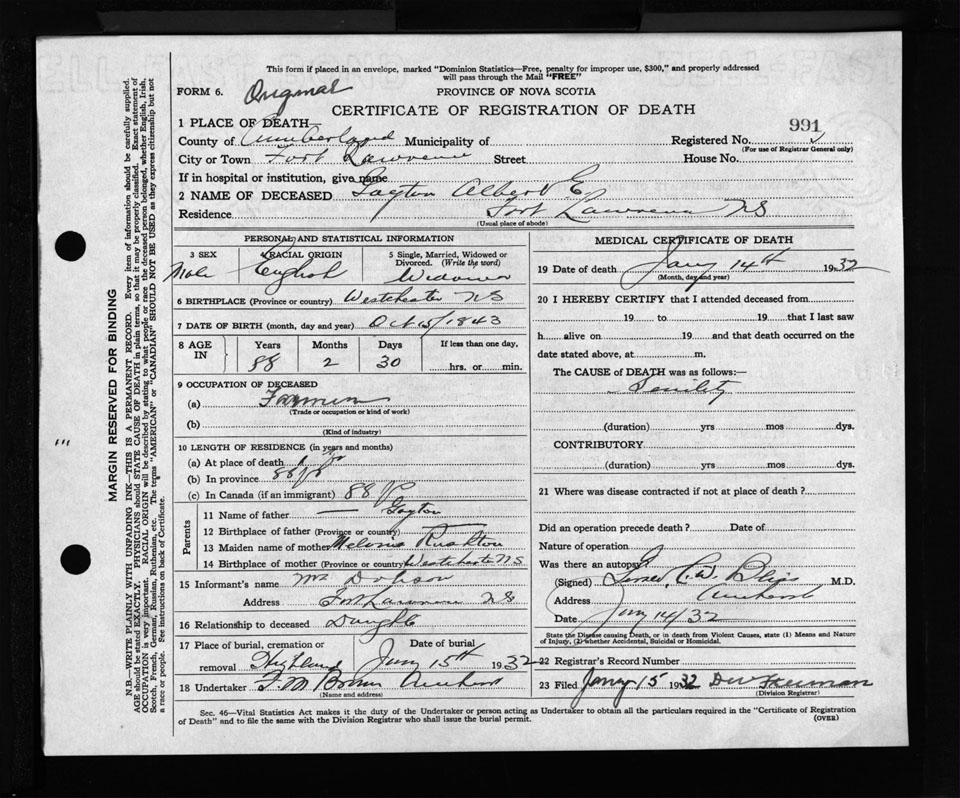 This form if placed in an envelope, marked "Dominion Statistics—Free, penalty for improper use, $300," and properly addressed
will pass through the Mail "FREE"
FORM 6. Original PROVINCE OF NOVA SCOTIA
CERTIFICATE OF REGISTRATION OF DEATH
1 PLACE OF DEATH— 991
County of Cumberland Municipality of Registered No.
(For use of Registrar General only)
City or Town Fort Lawrence Street House No.
If in hospital or institution, give name
2 NAME OF DECEASED Layton Albert E.
Residence Fort Lawrence NS
(Usual place of abode)
PERSONAL AND STATISTICAL INFORMATION
3 SEX 4 RACIAL ORIGIN 5 Single, Married, Widowed or Divorced. (Write the word)
Male English Widower
6 BIRTHPLACE (Province or country) Westchester NS
7 DATE OF BIRTH (month, day and year) Oct 15/1843
8 AGE IN Years Months Days If less than one day,
88 2 30 hrs. or min.
9 OCCUPATION OF DECEASED
(a) Farmer
(Trade or occupation or kind of work)
(b)
(Kind of industry)
10 LENGTH OF RESIDENCE (in years and months)
(a) At place of death
(b) In province 88
(c) In Canada (if an immigrant) 88
Parents
11 Name of father — Layton
12 Birthplace of father (Province or country)
13 Maiden name of mother Rushton
14 Birthplace of mother (Province or country) Westchester NS
15 Informant's name Mrs Dobson
Address Fort Lawrence NS
16 Relationship to deceased Daughter
17 Place of burial, cremation or Date of burial
removal Highland Jany 15th 1932
18 Undertaker F. M. Brown Amherst
(Name and address)
MEDICAL CERTIFICATE OF DEATH
19 Date of death Jany 14th 1932
(Month, day and year)
20 I HEREBY CERTIFY that I attended deceased from
19 to 19 that I last saw
h alive on 19 and that death occurred on the
date stated above, at m.
The CAUSE of DEATH was as follows:—
Senility
(duration) yrs mos dys.
CONTRIBUTORY
(duration) yrs mos dys.
21 Where was disease contracted if not at place of death?
Did an operation precede death? Date of
Nature of operation
Was there an autopsy?
(Signed) C. W. Bliss M.D.
Address Amherst
Date Jany 14/32
State the Disease causing Death, or in death from Violent Causes, state (1) Means and Nature
of Injury, (2) whether Accidental, Suicidal or Homicidal.
22 Registrar's Record Number
23 Filed Jany 15 1932 Freeman
(Division Registrar)
Sec. 46—Vital Statistics Act makes it the duty of the Undertaker or person acting as Undertaker to obtain all the particulars required in the "Certificate of Registration
of Death" and to file the same with the Division Registrar who shall issue the burial permit. (OVER)
MARGIN RESERVED FOR BINDING
N.B.—WRITE PLAINLY WITH UNFADING INK—THIS IS A PERMANENT RECORD. Every item of information should be carefully supplied.
AGE should be stated EXACTLY. PHYSICIANS should STATE CAUSE OF DEATH in plain terms, so that it may be properly classified. Exact statement of
OCCUPATION is very important. RACIAL ORIGIN will be described by stating to what people or race the deceased person belonged, whether English, Irish,
Scotch, French, German, Russian, Ruthenian, etc. The terms "AMERICAN" or "CANADIAN" SHOULD NOT BE USED as they express citizenship but not
a race or people. See instructions on back of Certificate.